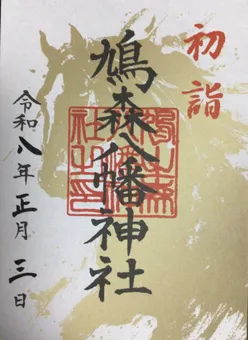 初詣
鳩森八幡神社
令和八年正月三日